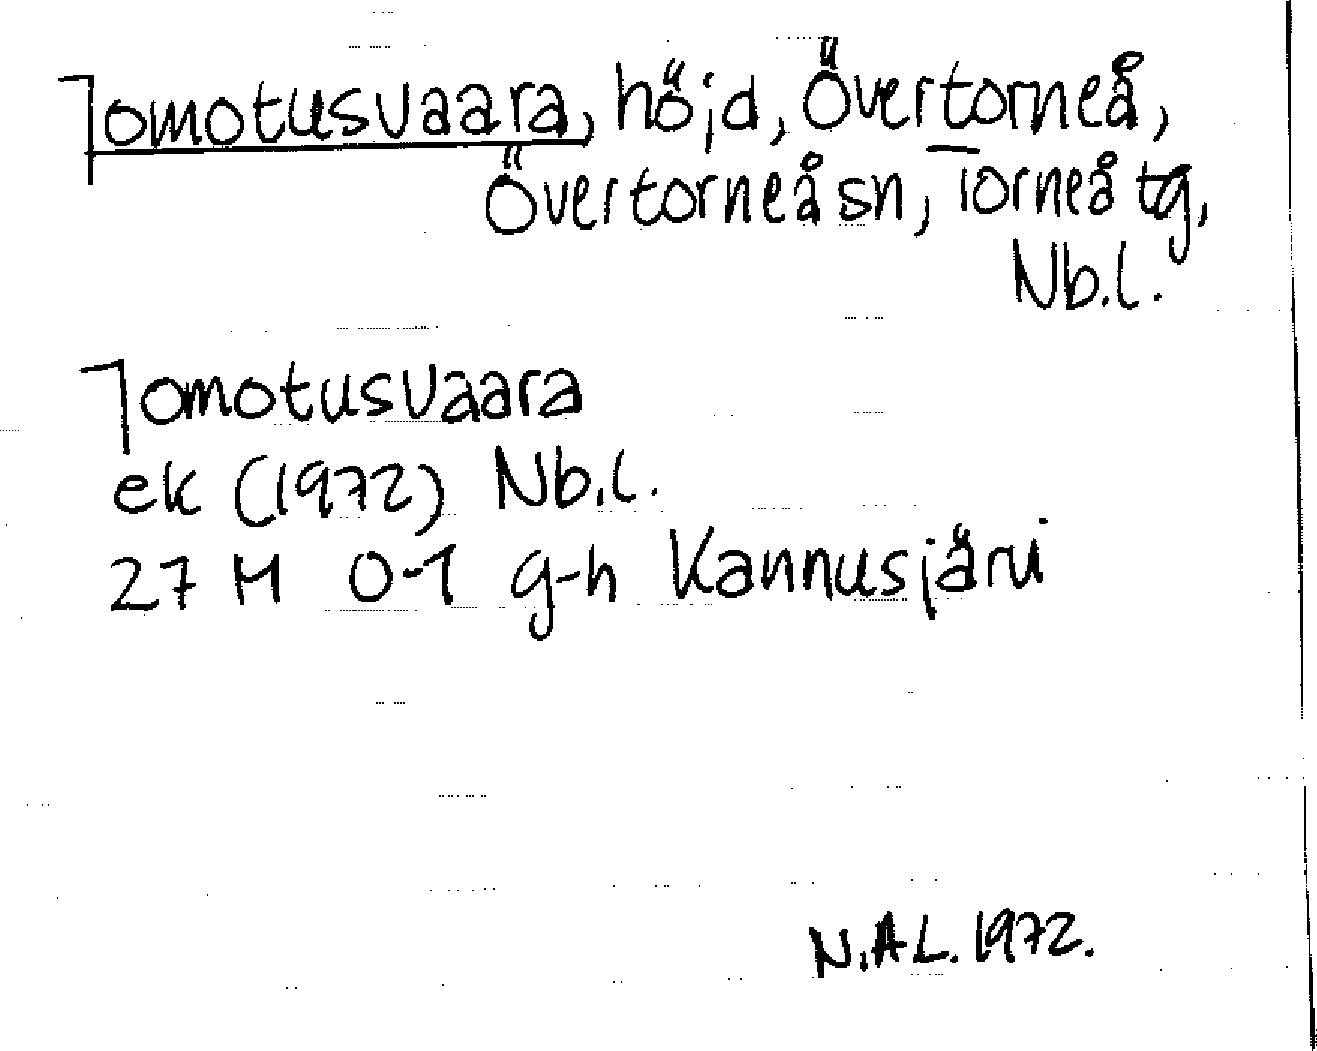 Jomotusvaara, höjd, Övertorneå,
Övertorneå sn, Torneå tg,
Nb.l.
Jomotusvaara
ek (1972) Nb.l.
27 M 0-1 g-h Kannusjärvi
N.A.L. 1972.